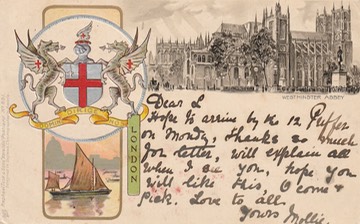 WESTMINSTER ABBEY
DOMINE DIRIGE NOS
LONDON
Dear L
Hope to arrive by the 12
on Monday, Thanks so much
for letter, will explain all
when I see you, hope you
will like this, O come &
Pick. Love to all.
Yours Mollie